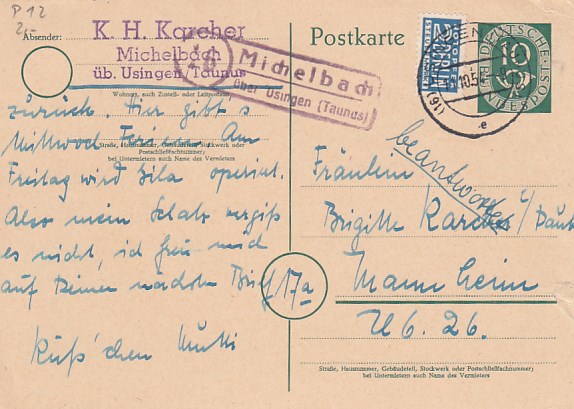 P 12
2,-
Absender:
K. H. Karcher
Michelbach
üb. Usingen/Taunus
Wohnort, auch Zustell- oder Leitpostamt
Straße, Hausnummer, Gebäudeteil, Stockwerk oder
Postschließfachnummer;
bei Untermietern auch Name des Vermieters
zurück. Hier gibt's
Mittwoch Ferien. Am
Freitag wird Gila operiert.
Also mein Schatz vergiß
es nicht, ich freu mich
auf Deinen nächsten Brief
Küß'chen Mutti
16
Michelbach
über Usingen (Taunus)
Postkarte
2
NOTOPFER
BERLIN
STEUERMARKE
10.5
(16)
e
DEUTSCHE
10
BUNDESPOST
beantwortet
Fräulein
Brigitte Karcher c/
Mannheim
17a
U 6. 26.
Straße, Hausnummer, Gebäudeteil, Stockwerk oder Postschließfachnummer;
bei Untermietern auch Name des Vermieters